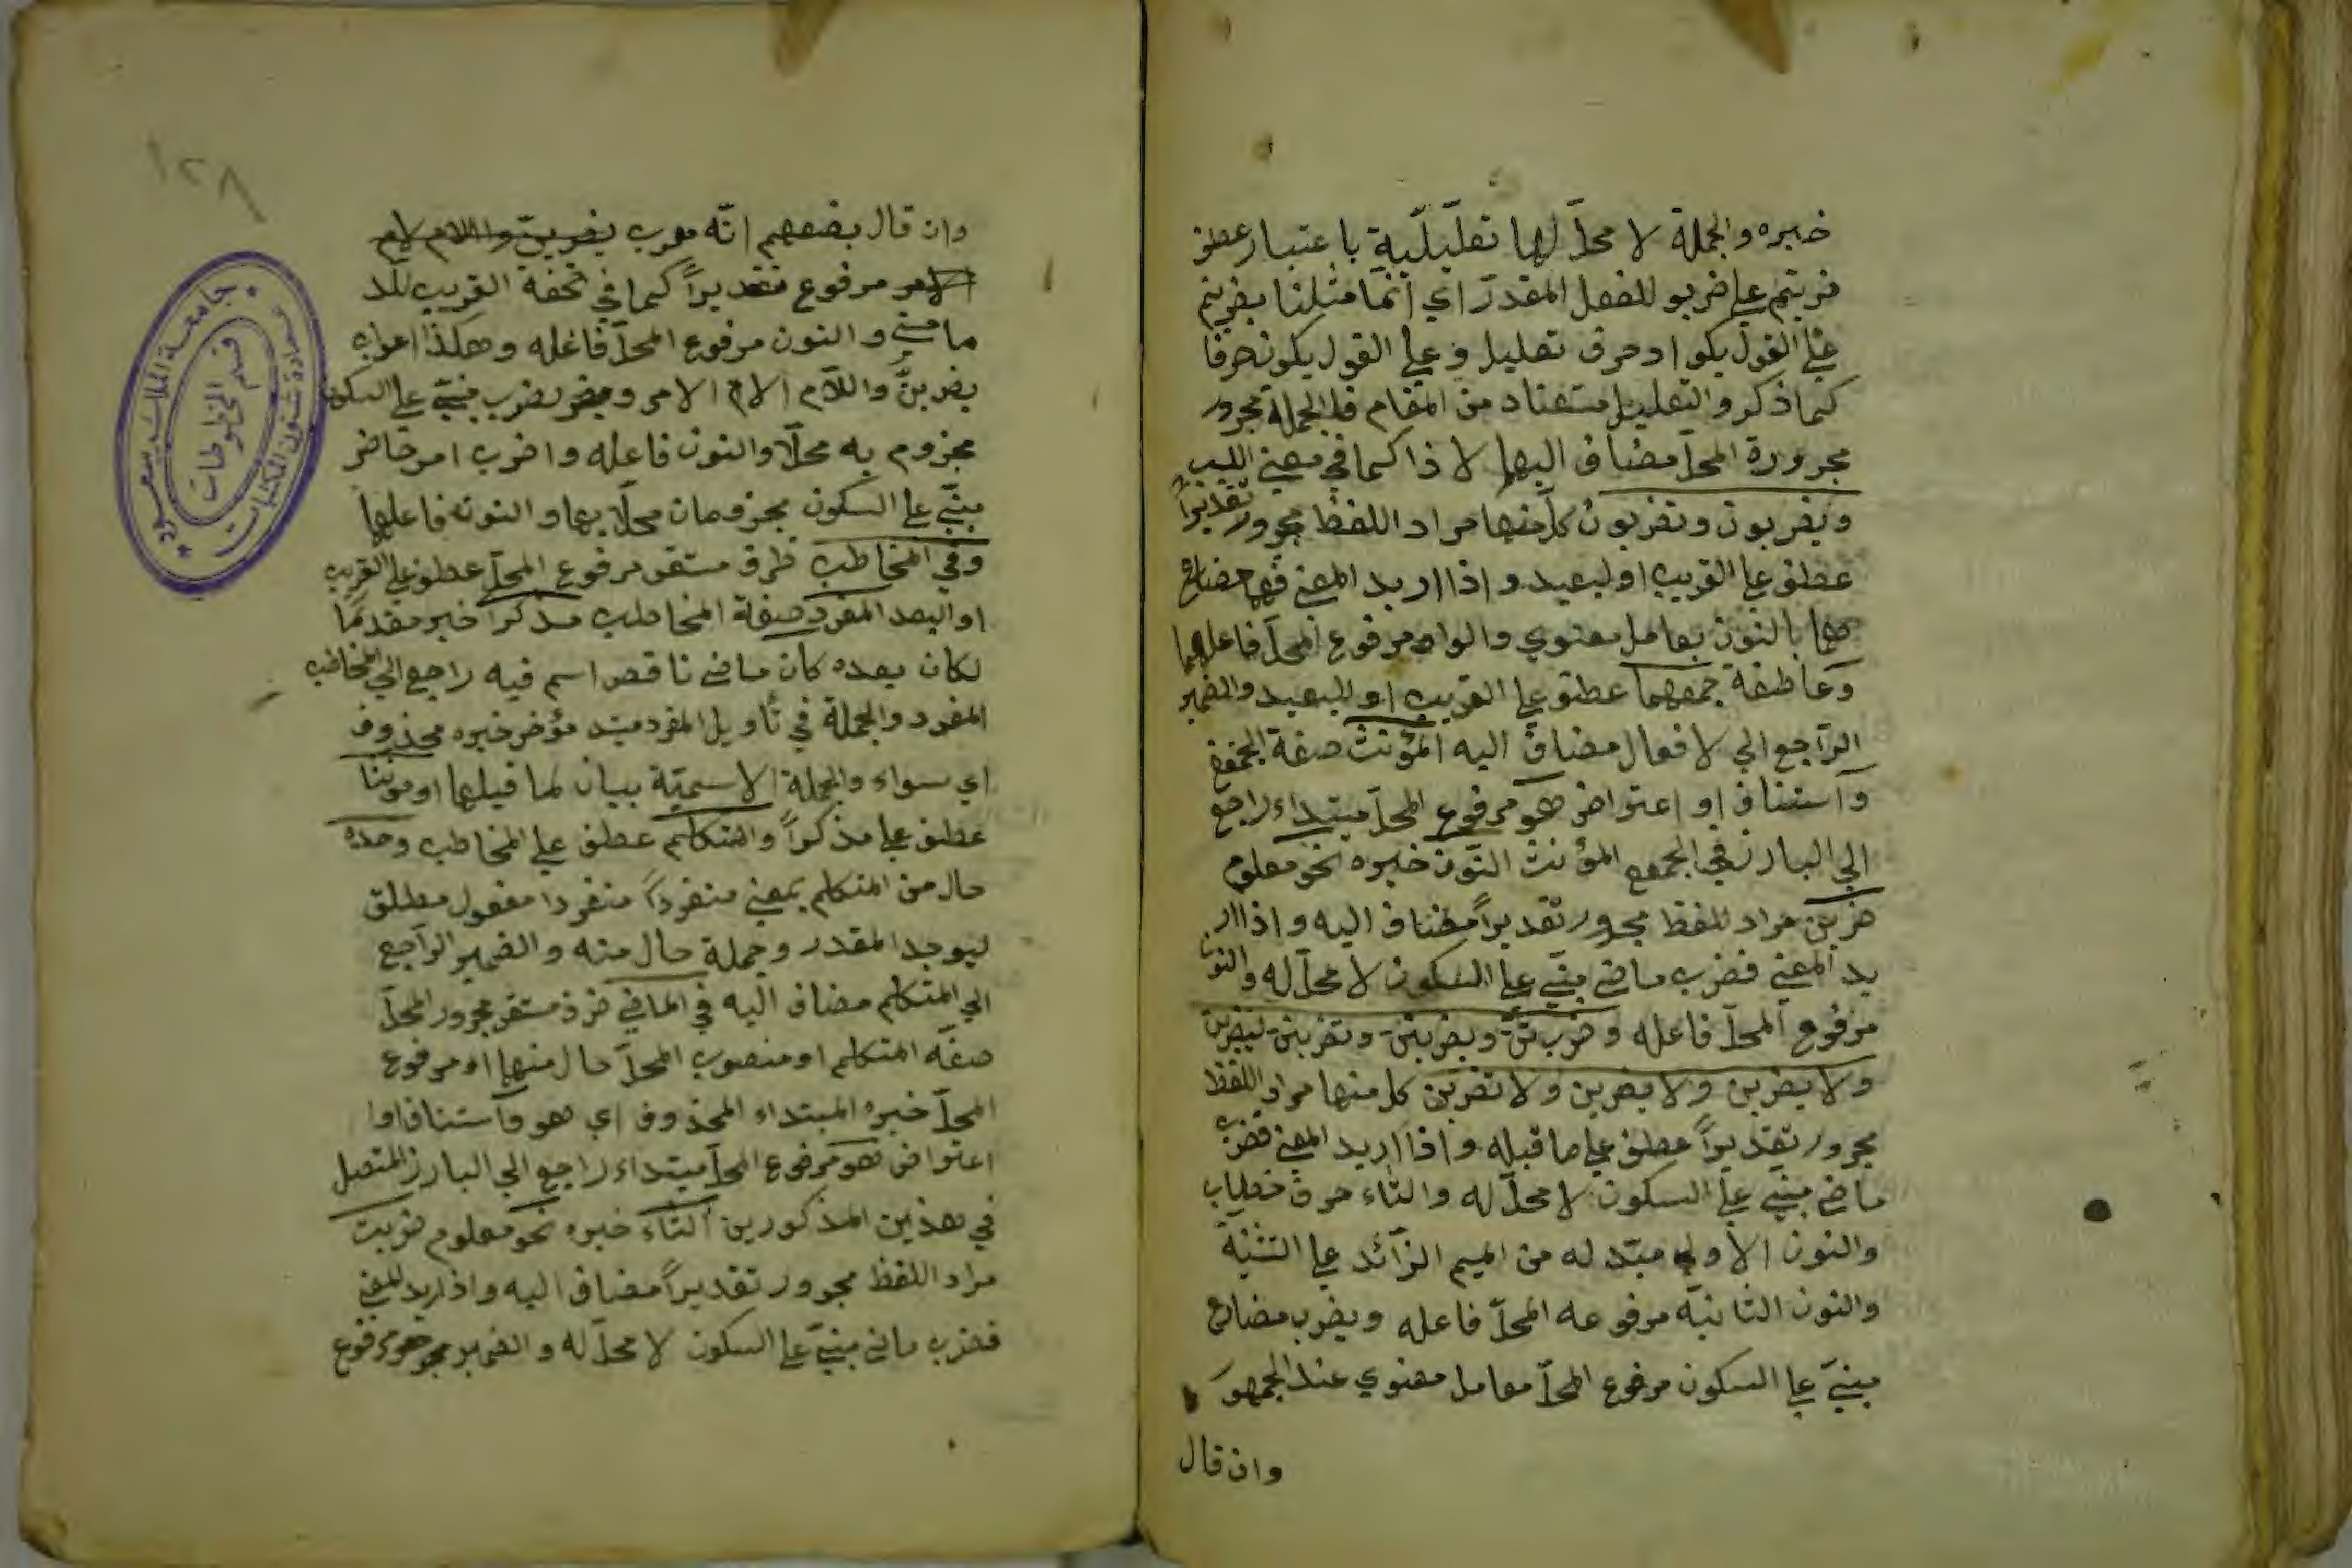 خبره والجملة لا محلّ لها تعليلية باعتبار عطف
ضربتم علي ضربو للفعل المقدر اي انما مثلنا بضربتم
علي القول يكو اد حرف تعليل و علي القول يكونه حرفا
كما ذكر والتعليل مستفاد من المقام فالجملة مجرور
مجرورة المحلّ مضاف اليها لا ذا كما في مغني اللبيب
ويضربون وتضربون كل منها مراد اللفظ مجرور تقديراً
عطف علي القريب او لبعيد و اذا اريد المعني فهما مضارع
هما بالنون بعامل معنوي والواو مرفوع المحلّ فاعلهما
وعاطفة جمعهما عطف علي القريب او للبعيد والضمير
الراجع الي لا فعال مضاف اليه المؤنث صفة الجمع
واستئناف او اعتراض هو مرفوع المحلّ مبتداء راجع
الي البارز في الجمع المؤنث النون خبره نحو معلوم
ضربن مراد للفظ مجرور تقديراً مضاف اليه و اذا ار
يد المعني فضرب ماضي مبنيّ علي السكون لا محلّ له والنون
مرفوع المحلّ فاعله وضربتنّ ويضربن وتضربن ليضربن
ولا يضربن ولا يضربن ولا تضربن كل منها مراد اللفظ
مجرور تقديراً عطف علي ما قبله و اذا اريد المعني فضرب
ماضي مبنيّ علي السكون لا محلّ له والتاء حرف خطاب
والنون الاولي مبتدله من الميم الزائد علي التثنية
والنون الثانية مرفوعه المحلّ فاعله ويضرب مضارع
مبنيّ علي السكون مرفوع المحلّ معامل معنوي عند الجمهور
وان قال
١٢٨
وان قال بعضهم انّه معرب
مرفوع تقديراً كما في تحفة القريب للد
ماميني و النون مرفوع المحلّ فاعله و هكذا اعراب
يضربنّ واللآم الام الامر و يضرب مبنيّ علي السكون
مجزوم به محلّا والنون فاعله واضرب امر حاضر
مبنيّ علي السكون مجزومان محلّا بهما و النونه فاعلهما
وفي المخاطب ظرف مستقر مرفوع المحلّ عطف علي القريب
او البعد المفرد صفة المخاطب مذكراً خبر مقدماً
لكان بعده كان ماضي ناقص اسم فيه راجع الي المخاطب
المفرد والجملة في تأويل المفرد مبتد مؤخر خبره محذوف
اي سواء والجملة الاسميّة بيان لما قبلها او مؤنثا
عطف علي مذكراً والمتكلم عطف علي المخاطب وحده
حال من المتكلم بمعني منفرداً منفردا مفعول مطلق
ليوجد المقدر وجملة حال منه و الضمير الراجع
الي المتكلم مضاف اليه في الماضي ظرف مستقر مجرور المحلّ
صفه المتكلم او منصوب المحلّ حال منها او مرفوع
المحلّ خبره المبتداء المحذوف اي هو واستئناف اوا
اعتراض هو مرفوع المحلّ مبتداء راجع الي البارز المتصل
في هذين المذكورين التاء خبره نحو معلوم ضربت
مراد اللفظ مجرور تقديراً مضاف اليه واذ اريد المعني
فضرب ماضي مبنيّ علي السكون لا محلّ له و الضمير مرفوع
جامعة الملك سعود
عمادة شئون المكتبات
قسم المخطوطات